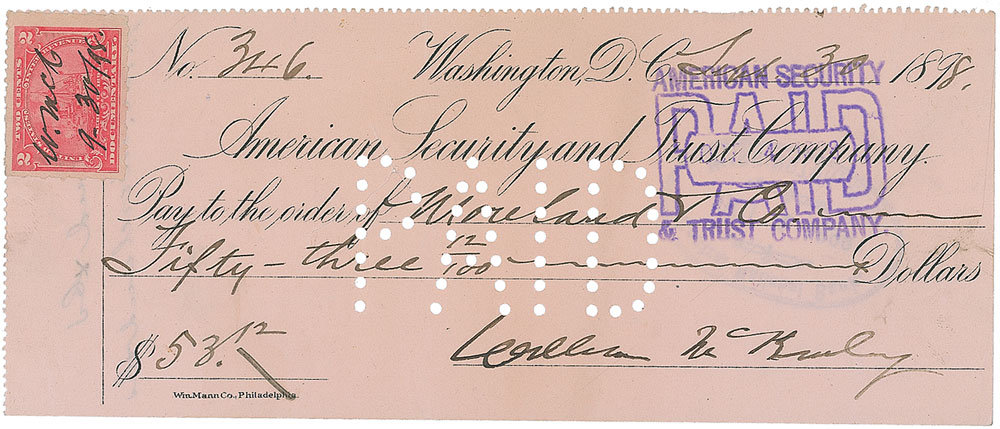 No. 346. Washington, D.C. Sep 30 1898.
American Security and Trust Company
Pay to the order of Moreland & Co.
Fifty-three 12/100 Dollars
$53.12 William McKinley
Wm. Mann Co., Philadelphia.
TWO CENTS
DOCUMENTARY
2 2
W. McK
9-30/98.
AMERICAN SECURITY
PAID
PAID
& TRUST COMPANY
PAID